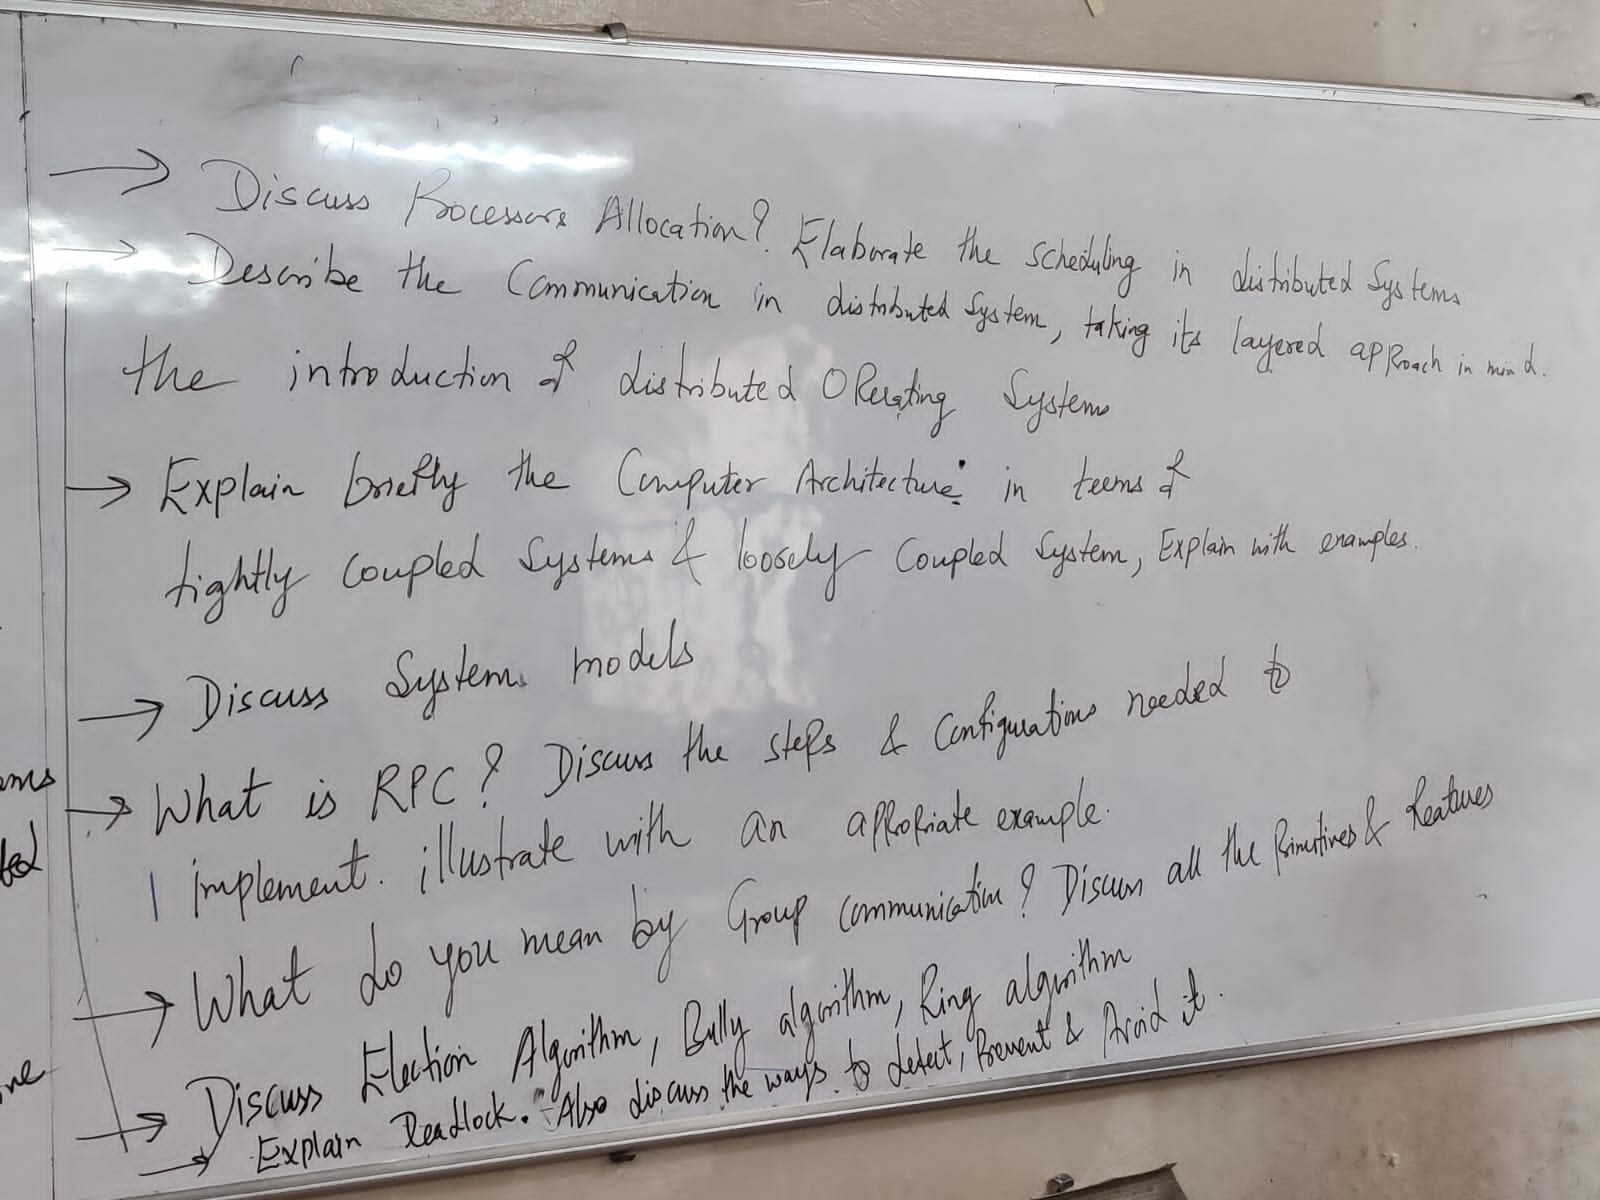 → Discuss Processors Allocation? Elaborate the scheduling in distributed Systems
→ Describe the Communication in distributed System, taking its layered approach in mind.
the introduction of distributed Operating Systems
→ Explain briefly the Computer Architecture in terms of
tightly coupled Systems & loosely Coupled System, Explain with examples.
→ Discuss System models
→ What is RPC? Discuss the steps & Configurations needed to
implement. illustrate with an appropriate example.
→ What do you mean by Group communication? Discuss all the Primitives & features
→ Discuss Election Algorithm, Bully algorithm, Ring algorithm
→ Explain Deadlock. Also discuss the ways to detect, Prevent & Avoid it.